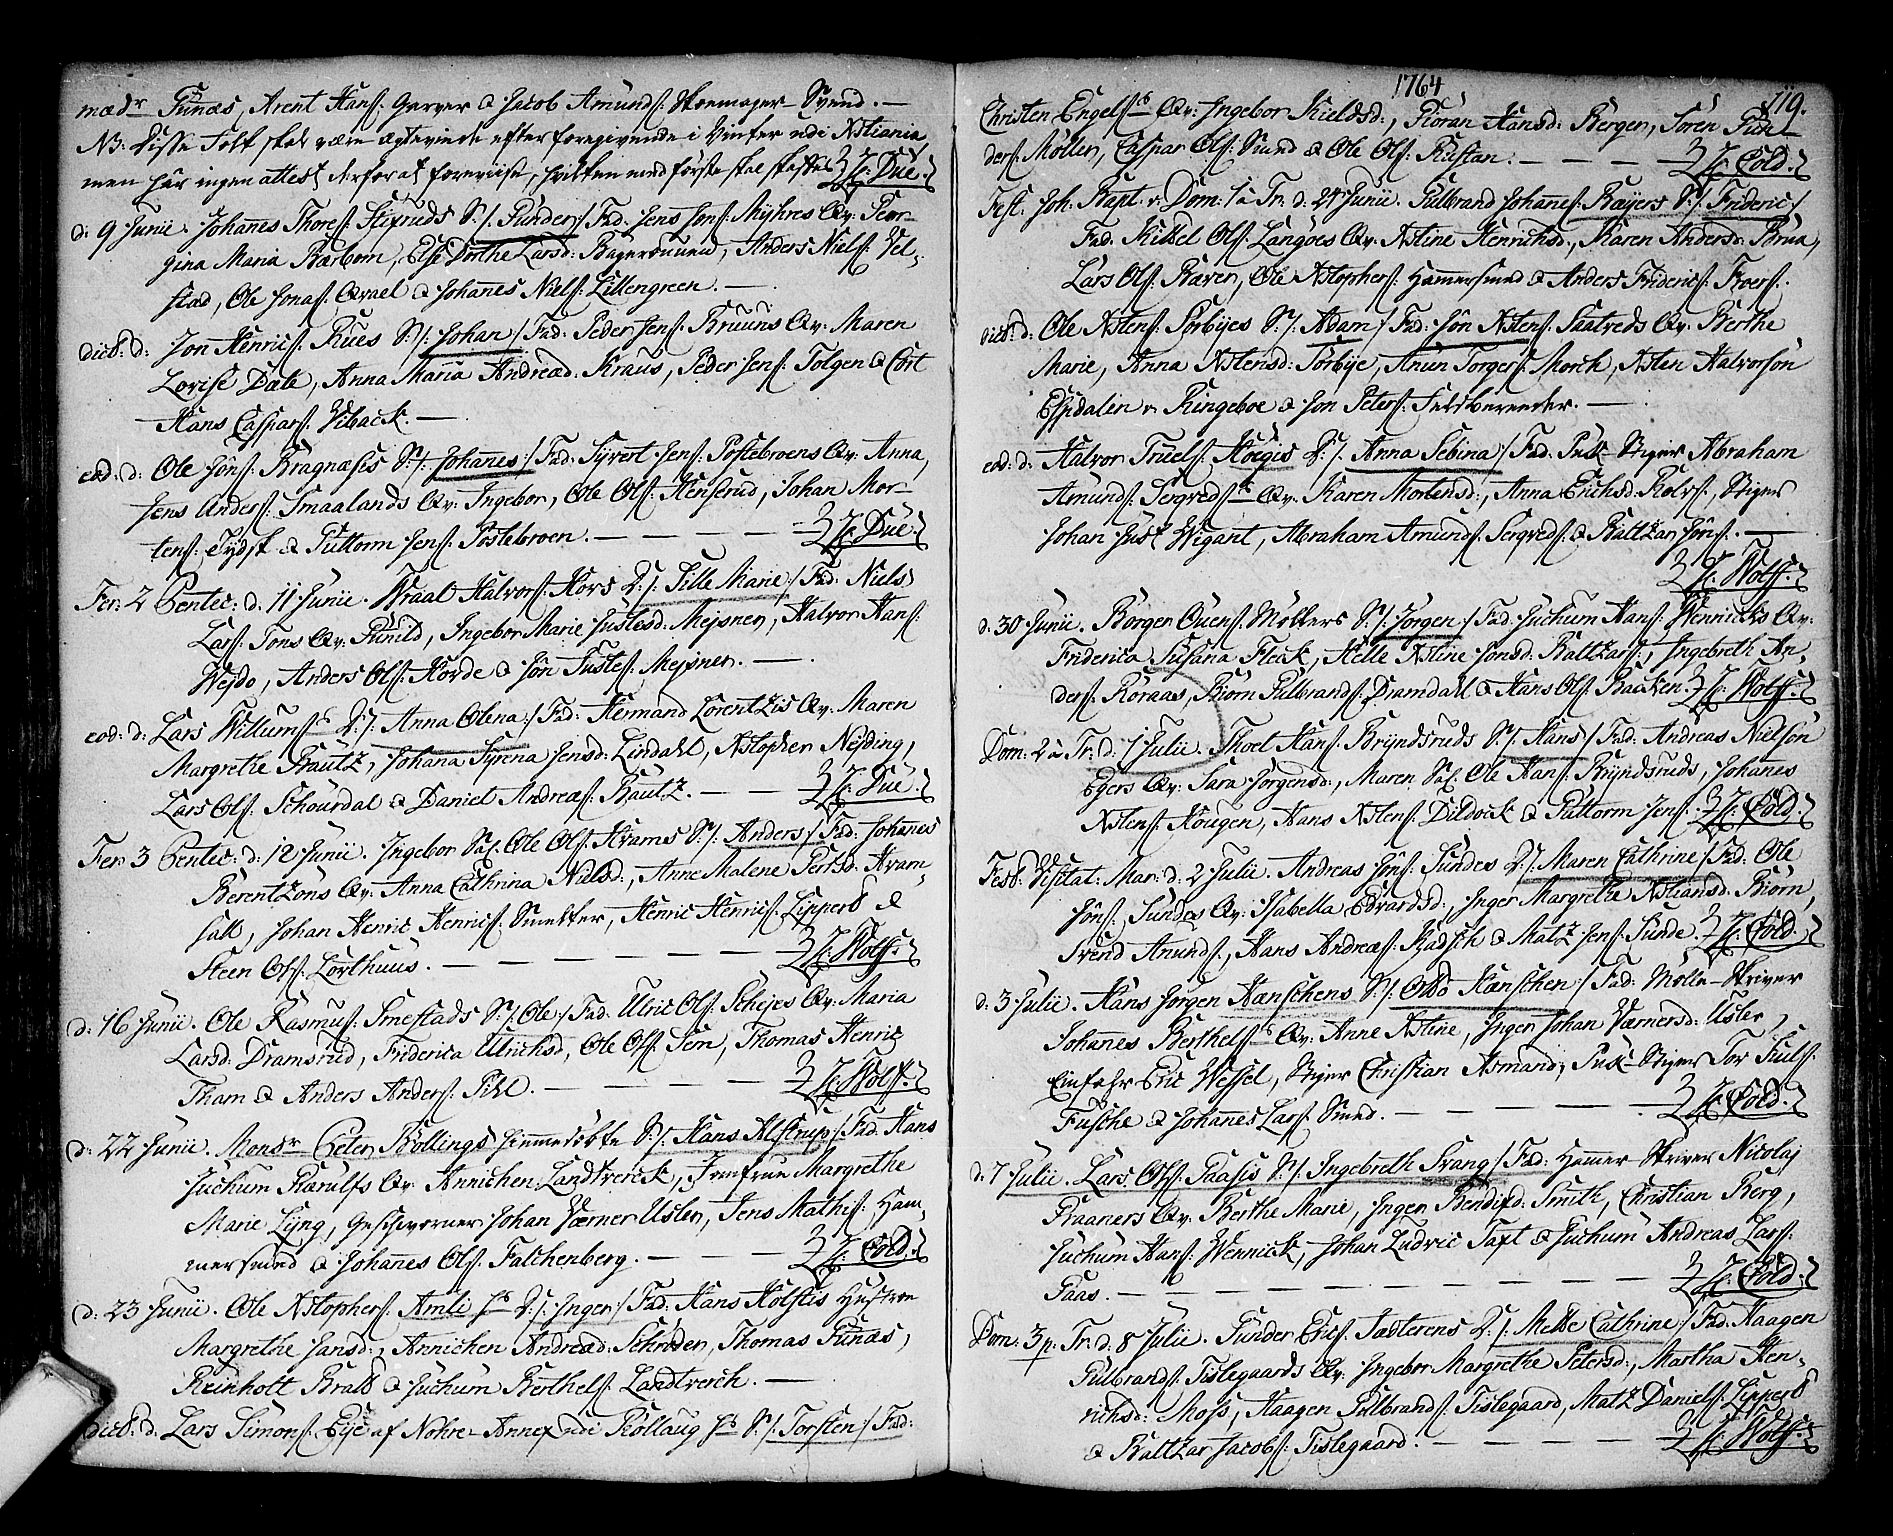 mædr Funæs, Arent Hans: Garver & Jacob Amunds: Skoemager-Svend. —
NB: Disse Folk skal være ægteviede efter foregivende i Vinter udi Xstiania
men har ingen attest derfor at foreviise, hvilken med første skal skaffes H: Due.
d: 9 Junii. Johannes Thores: Stixruds S: /: Gunder /: Fad: Jens Jons: Myhres Qv: Geor-
gina Maria Bærbom, Else Dorthe Larsd: Bagersvuen, Anders Niels: Vel-
stad, Ole Jonas: Qvael & Johannes Niels: Lillengreen. —
dict: d: Jon Henrics: Rues S: /: Johan /: Fad: Peder Jens: Bruuns Qv: Maren
Lovise Date, Anna Maria Andreæd: Kraus, Peder Jens: Tolgen & Cort
Hans Caspars: Viback. —
eod: d: Ole Jöns: Kragnæsis S: /: Johannes /: Fad: Syvert Jens: Postebroens Qv: Anna,
Jens Anders: Smaalands Qv: Ingebor, Ole Ols: Henserud, Johan Mor-
tens: Tydsk & Guttorm Jens: Postebroen. — — — — H: Due.
Fer: 2 Pentec: d. 11 Junii. Wraal Halvors: Kors D: /: Sille Marie /: Fad: Niels
Lars: Tons Qv: Gunild, Ingebor Marie Justesd: Mejsner, Halvor Hans:
Wejdo, Anders Ols: Horde & Jön Justes: Mejsner. —
eod: d: Lars Willums: D: /: Anna Olena /: Fad: Hermand Lorentzis Qv: Maren
Margrethe Bautz, Johana Syrena Jensd: Lindahl, Xstopher Nejding,
Lars Ols: Schourdal & Daniel Andreæs: Bautz. — — H: Due.
Fer: 3 Pentec: d: 12 Junii. Ingebor Sal. Ole Ols: Hrams S: /: Anders /: Fad: Johannes
Berentzöns Qv: Anna Cathrina Nielsd:, Anne Malene Persd: Hram-
sall, Johan Henric Henrics: Smelter, Henric Henrics: Lippert &
Steen Ols: Lorthuus. — — — — H: Wolff.
d: 16 Junii. Ole Rasmus: Smestads S: /: Ole /: Fad: Ulric Ols: Schejes Qv: Maria
Larsd: Dramsrud, Friderica Ulrichsd, Ole Ols: Sem, Thomas Henric
Tham & Anders Anders: Pihl. — — — H: Wolff.
d: 22 Junii. Monsr Peter Böllings hiemmedöbte S: /: Hans Alstrup /: Fad: Hans
Juchum Rærulfs Qv: Annichen Landtverck, Jomfrue Margrethe
Marie Lyng, Geschworner Johan Værner Usler, Jens Mathis: Ham-
mersmed & Johannes Ols: Falchenberg. — — — H: Cold.
d: 23 Junii. Ole Xstophers: Amli D: /: Inger /: Fad: Hans Holstis Hustroe
Margrethe Jansd:, Annichen Andreæd: Schröder, Thomas Funæs,
Reinholt Brats & Juchum Berthels: Landtverch. —
dict: d. Lars Simons: Eye af Nohre-Annex udi Rollaug S: /: Torsten /: Fad:
1764
119.
Christen Engels: Qv: Ingebor Kieldsd:, Giöran Hansd: Bergen, Sören Gun-
ders: Möller, Caspar Ols: Smed & Ole Ols: Rustan. — — — H: Cold.
Fest: Joh: Bapt: & Dom: 1 a Tr: d. 24 Junii. Gulbrand Johannes: Røyers S: /: Frideric /:
Fad: Kittel Ols: Langöes Qv: Xstine Henrichsd:, Karen Andersd: Brua,
Lars Ols: Raven, Ole Xstophers: Hammersmed & Anders Friderics: Froers.
dict: d: Ole Xstens: Sörbyes S: /: Adam /: Fad: Jön Xstens: Saatveds Qv: Berthe
Marie, Anna Xstensd: Sörbye, Anun Torgers: Morch, Xsten Halvorsön
Espdalen & Ringeboe & Jon Peters: Feldbereeder. —
eod: d: Halvor Truels: Hougis D: /: Anna Sebina /: Fad: Puk-Stiger Abraham
Amunds: Seqveds Qv: Karen Mortensd:, Anna Erichsd: Rolvs:, Stiger
Johan Just Wigant, Abraham Amunds: Seqveds & Baltzar Jöns: —
H: Wolff.
d: 30 Junii. Börger Ouens: Möllers S: /: Jörgen /: Fad: Juchum Hans: Wennicks Qv:
Friderica Susana Fleck, Helle Xstine Jonsd: Baltzars:, Ingebreth An-
ders: Roraas, Biörn Gulbrands: Dramdahl & Hans Ols: Backen. H: Wolff.
Dom: 2 a Tr: d: 1 Julii. Thoel Hans: Bryndsruds S: /: Hans /: Fad: Andreas Nielsön
Egers Qv: Sara Jörgensd:, Maren Sal. Ole Hans: Bryndsruds, Johannes
Xstens: Hougen, Hans Xstens: Dildock & Guttorm Jens: H: Cold.
Fest: Visitat: Mar: d: 2 Julii. Andreas Jöns: Sundes D: /: Maren Cathrine /: Fad: Ole
Jöns: Sundes Qv: Isabella Edvardsd:, Inger Margrethe Xstiansd: Biörn,
Svend Amunds:, Hans Andreæs: Radsch & Matz Jens: Sunde. H: Cold.
d: 3 Julii. Hans Jörgen Hænschens S: /: Otto Hænschen /: Fad: Mölle-Skriver
Johannes Berthels: Qv: Anne Xstine, Inger Johan Værnersd: Usler,
Einfahr Eric Wessel, Stiger Christian Asmand, Puk-Stiger Tor Juuls:
Fusche & Johannes Lars: Smed. — — — — — H: Cold.
d: 7 Julii. Lars Ols: Gaasis S: /: Ingebreth Svang /: Fad: Hamer-Skriver Nicolaj
Praaners Qv: Berthe Marie, Inger Bendixd: Smith, Christian Berg,
Juchum Hans: Wennick, Johan Ludvic Taft & Juchum Andreas Lars:
Gaas. — — — — — — — H: Cold.
Dom: 3 p: Tr: d: 8 Julii. Gunder Erics: Sædterens D: /: Mette Cathrine /: Fad: Haagen
Gulbrands: Tislegaards Qv: Ingebor Margrethe Petersd:, Martha Hen-
richsd: Moss, Haagen Gulbrands: Tislegaard, Matz Daniels: Lippert
& Baltzar Jacobs: Tislegaard. — — — — H: Wolff.